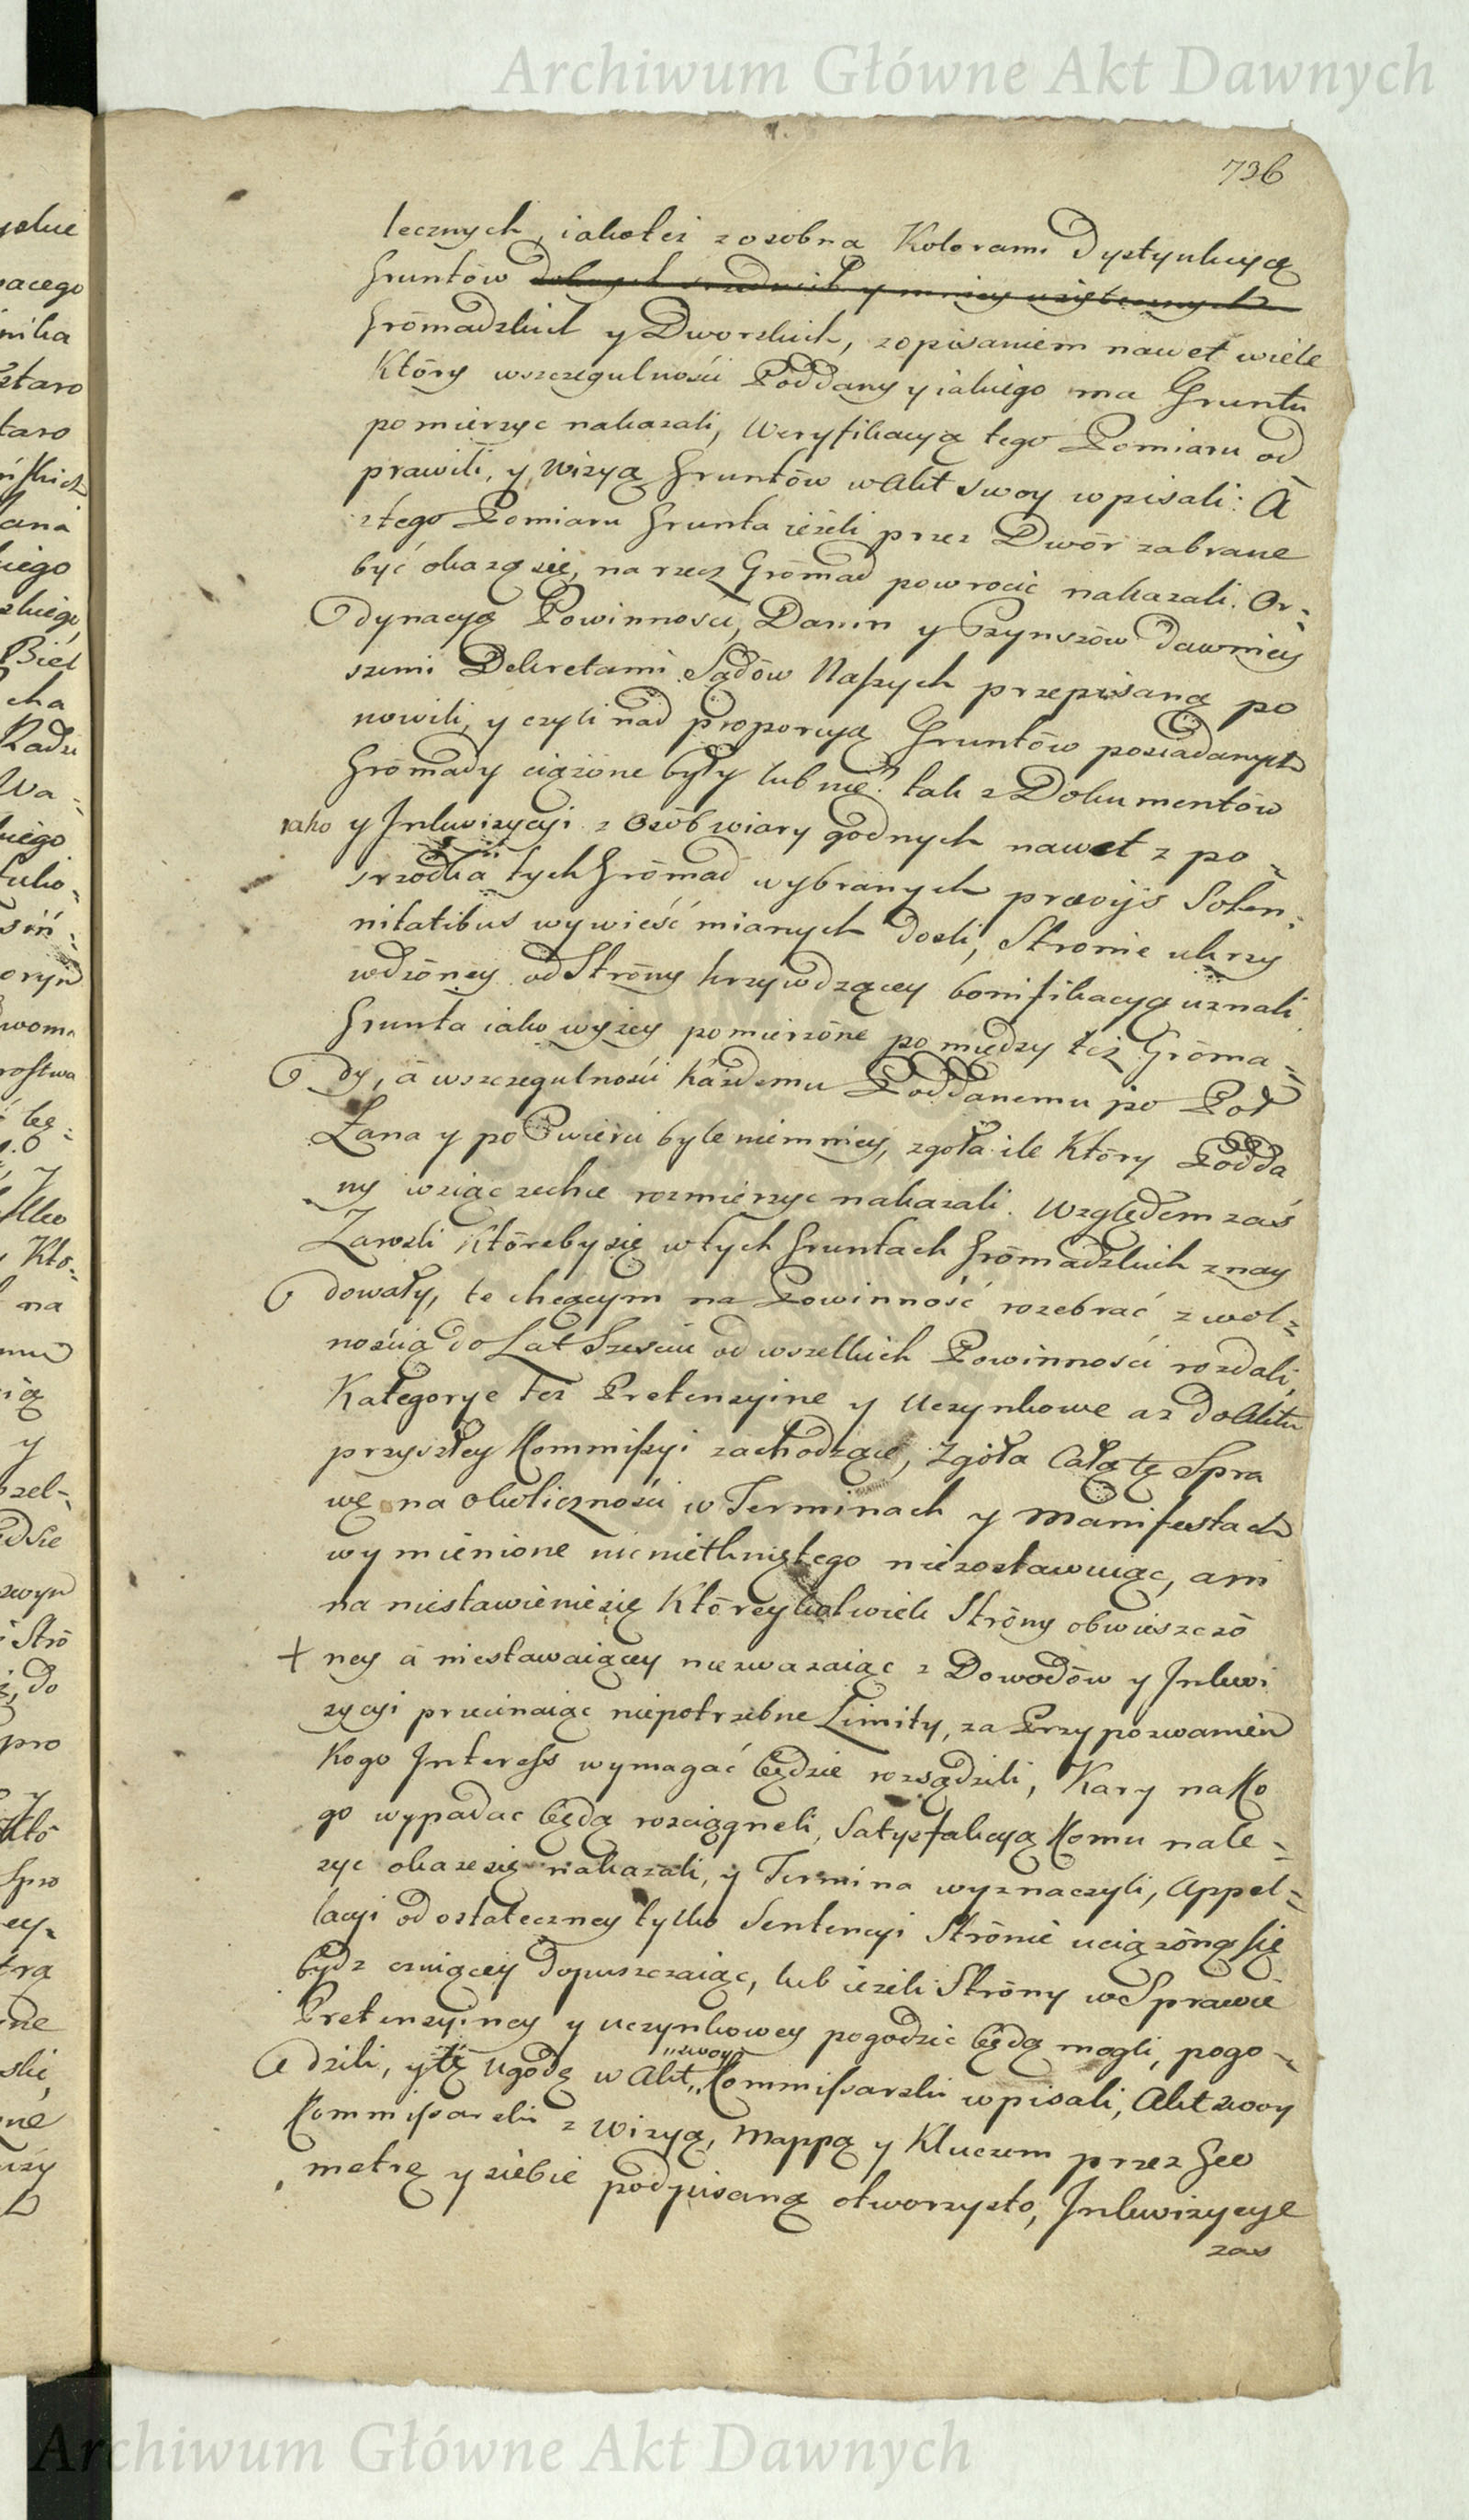 Archiwum Główne Akt Dawnych
736
tecznych, iakoteż zosobna Kolorami Dystynkcyą
Gruntów dobrych srednich y mniey użytecznych
Grōmadzkich y Dworskich, zopisaniem nawet wiele
Ktōry wszczegulności Poddany y iakiego ma Gruntu
pomierzyc nakazali, Weryfikacyą tego Pomiaru od
prawili, y Wizyą Gruntōw wAkt swoy wpisali: A
ztego Pomiaru Grunta ieżeli przez Dwōr zabrane
być okazą się, na rzecz Grōmad powrocić nakazali. Or=
dynacyą Powinności, Danin y Czynszōw dawniey
szemi Dekretami Sądōw Naszych przepisaną po
nowili, y czyli nad proporcyą Gruntōw posiadanych
Grōmady ciążōne były lub nie? tak z Dokumentōw
iako y Jnkwizycyi z Osōb wiary godnych nawet z po=
srzodka tych Grōmad wybranych prævijs Solen=
nitatibus wywieść mianych doszli, Stronie ukrzy
wdzōney od Strōny krzywdzącey bonifikacyą uznali
Grunta iako wyżey pomierzōne pomiędzy też Grōma=
dy, á wszczegulności każdemu Poddanemu po Poł
Łana y po Cwierci byle niemniey, zgoła ile Ktōry Podda
ny wziąc zechce rozmierzyc nakazali. Względem zaś
Zarosli Ktōreby się wtych Gruntach Grōmadzkich znay
dowały, te chcącym na Powinność rozebrać z wol=
nością do Lat Szesciu od wszelkich Powinności rozdali,
Kategorye też Pretensyine y Uczynkowe aż doAktu
przyszłey Kommissyi zachodzące, Zgoła Całą tę Spra
wę na okoliczności w Terminach y Manifestach
wymienione nic nietkniętego niezostawuiąc, ani
na niestawienie się Ktōreykolwiek Strōny obwieszczō
+ ney á niestawaiącey niezwazaiąc z Dowodōw y Jnkwi
zycyi przecinaiąc niepotrzebne Limity, za Przypozwaniem
Kogo Jnteress wymagać będzie rozsądzili, Kary na Ko
go wypadac będą rozciągneli, Satysfakcyą Komu nale=
zyc okaże się nakazali, y Termina wyznaczyli, Appel=
lacyi od ostateczney tylko Sentencyi Strōnie uciążōną się
bydz czuiącey dopuszczaiąc, lub ieżeli Strōny wSprawie
Pretensyiney y Uczynkowey pogodzic będą mogli, pogo=
"swoy"
dzili, y tę Ugodę w Akt "Kommissarski wpisali, Akt swoy
Kommissarski z Wizyą, Mappą y Kluczem przez Geo
metrę y siebie podpisaną otworzysto, Jnkwizycye
zas
Archiwum Główne Akt Dawnych